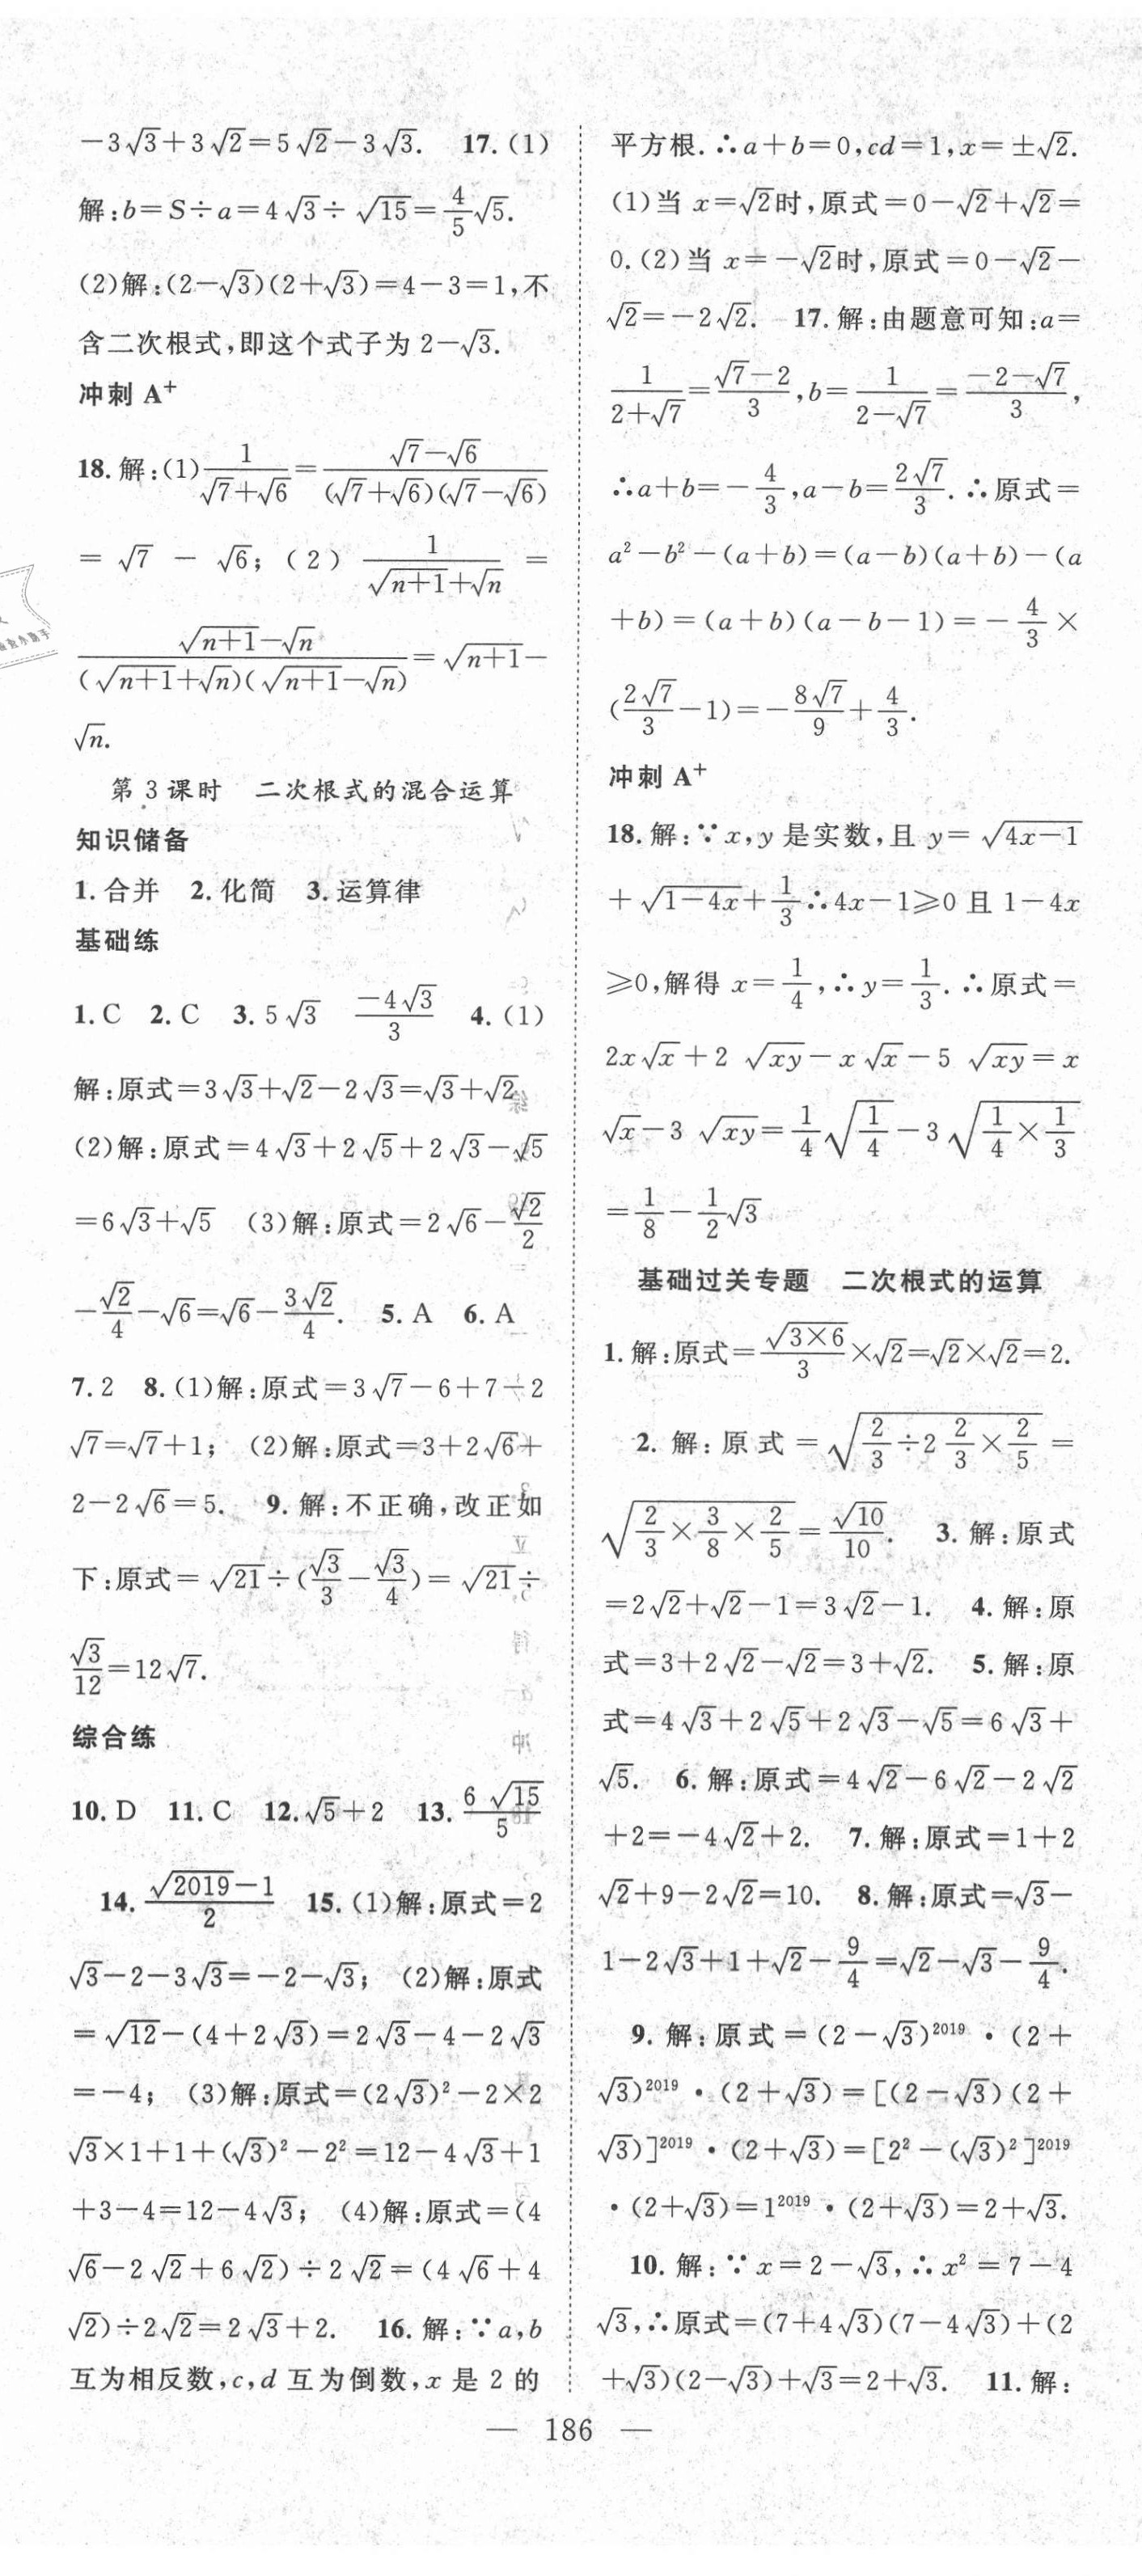 -3√3+3√2=5√2-3√3. 17.(1)
解:b=S÷a=4√3÷√15=4/5√5.
(2)解:(2-√3)(2+√3)=4-3=1,不
含二次根式,即这个式子为 2-√3.
冲刺 A⁺
18.解:(1)1/(√7+√6)=(√7-√6)/((√7+√6)(√7-√6))
=√7-√6;(2)1/(√(n+1)+√n)=
(√(n+1)-√n)/((√(n+1)+√n)(√(n+1)-√n))=√(n+1)-
√n.
第 3 课时 二次根式的混合运算
知识储备
1.合并 2.化简 3.运算律
基础练
1.C 2.C 3.5√3 (-4√3)/3 4.(1)
解:原式=3√3+√2-2√3=√3+√2
(2)解:原式=4√3+2√5+2√3-√5
=6√3+√5 (3)解:原式=2√6-√2/2
-√2/4-√6=√6-3√2/4. 5.A 6.A
7.2 8.(1)解:原式=3√7-6+7-2
√7=√7+1; (2)解:原式=3+2√6+
2-2√6=5. 9.解:不正确,改正如
下:原式=√21÷(√3/3-√3/4)=√21÷
√3/12=12√7.
综合练
10.D 11.C 12.√5+2 13.6√15/5
14.(√2019-1)/2 15.(1)解:原式=2
√3-2-3√3=-2-√3; (2)解:原式
=√12-(4+2√3)=2√3-4-2√3
=-4; (3)解:原式=(2√3)²-2×2
√3×1+1+(√3)²-2²=12-4√3+1
+3-4=12-4√3; (4)解:原式=(4
√6-2√2+6√2)÷2√2=(4√6+4
√2)÷2√2=2√3+2. 16.解:∵a,b
互为相反数,c,d 互为倒数,x 是 2 的
平方根.∴a+b=0,cd=1,x=±√2.
(1)当 x=√2时,原式=0-√2+√2=
0.(2)当 x=-√2时,原式=0-√2-
√2=-2√2. 17.解:由题意可知:a=
1/(2+√7)=(√7-2)/3,b=1/(2-√7)=(-2-√7)/3,
∴a+b=-4/3,a-b=2√7/3.∴原式=
a²-b²-(a+b)=(a-b)(a+b)-(a
+b)=(a+b)(a-b-1)=-4/3×
(2√7/3-1)=-8√7/9+4/3.
冲刺 A⁺
18.解:∵x,y 是实数,且 y=√(4x-1)
+√(1-4x)+1/3∴4x-1⩾0 且 1-4x
⩾0,解得 x=1/4,∴y=1/3.∴原式=
2x√x+2√(xy)-x√x-5√(xy)=x
√x-3√(xy)=1/4√(1/4)-3√(1/4×1/3)
=1/8-1/2√3
基础过关专题 二次根式的运算
1.解:原式=√(3×6)/3×√2=√2×√2=2.
2.解:原式=√(2/3÷2 2/3×2/5)=
√(2/3×3/8×2/5)=√10/10. 3.解:原式
=2√2+√2-1=3√2-1. 4.解:原
式=3+2√2-√2=3+√2. 5.解:原
式=4√3+2√5+2√3-√5=6√3+
√5. 6.解:原式=4√2-6√2-2√2
+2=-4√2+2. 7.解:原式=1+2
√2+9-2√2=10. 8.解:原式=√3-
1-2√3+1+√2-9/4=√2-√3-9/4.
9.解:原式=(2-√3)²⁰¹⁹·(2+
√3)²⁰¹⁹·(2+√3)=[(2-√3)(2+
√3)]²⁰¹⁹·(2+√3)=[2²-(√3)²]²⁰¹⁹
·(2+√3)=1²⁰¹⁹·(2+√3)=2+√3.
10.解:∵x=2-√3,∴x²=7-4
√3,∴原式=(7+4√3)(7-4√3)+(2
+√3)(2-√3)+√3=2+√3. 11.解:
— 186 —